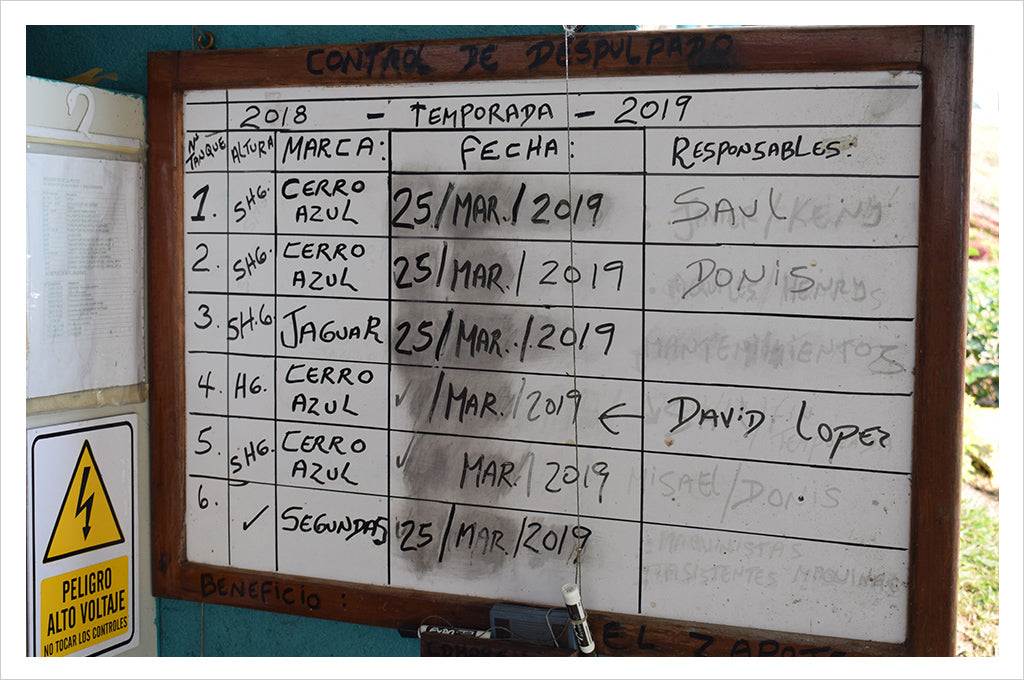 CONTROL DE DESPULPADO
2018 - TEMPORADA - 2019
Nº TANQUE ALTURA MARCA: FECHA: RESPONSABLES:
1. SHG. CERRO AZUL 25/MAR./2019 SAUL/KENY
2. SHG. CERRO AZUL 25/MAR./2019 DONIS
3. SH.G. JAGUAR 25/MAR./2019 MANTENIMIENTOS
4. HG. CERRO AZUL ✓/MAR./2019 ← DAVID LOPEZ
5. SHG. CERRO AZUL ✓ MAR./2019 MISAEL/DONIS
6. ✓ SEGUNDAS 25/MAR/2019 MAQUINISTAS
BENEFICIO:
EL ZAPOTE
PELIGRO
ALTO VOLTAJE
NO TOCAR LOS CONTROLES
EXPO